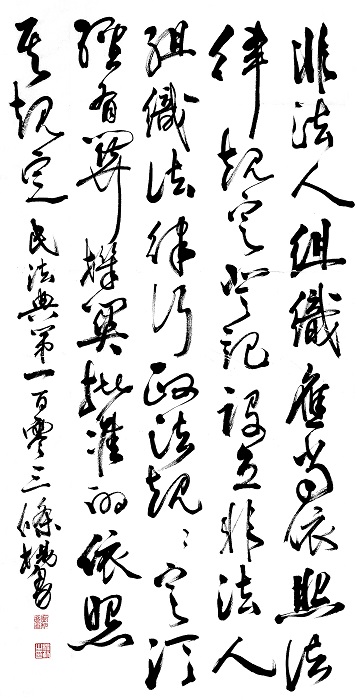 非法人組織應當依照法
律規定登記設立非法人
組織法律行政法規〻定須
經有關機關批准的依照
其規定 民法典第一百零三條